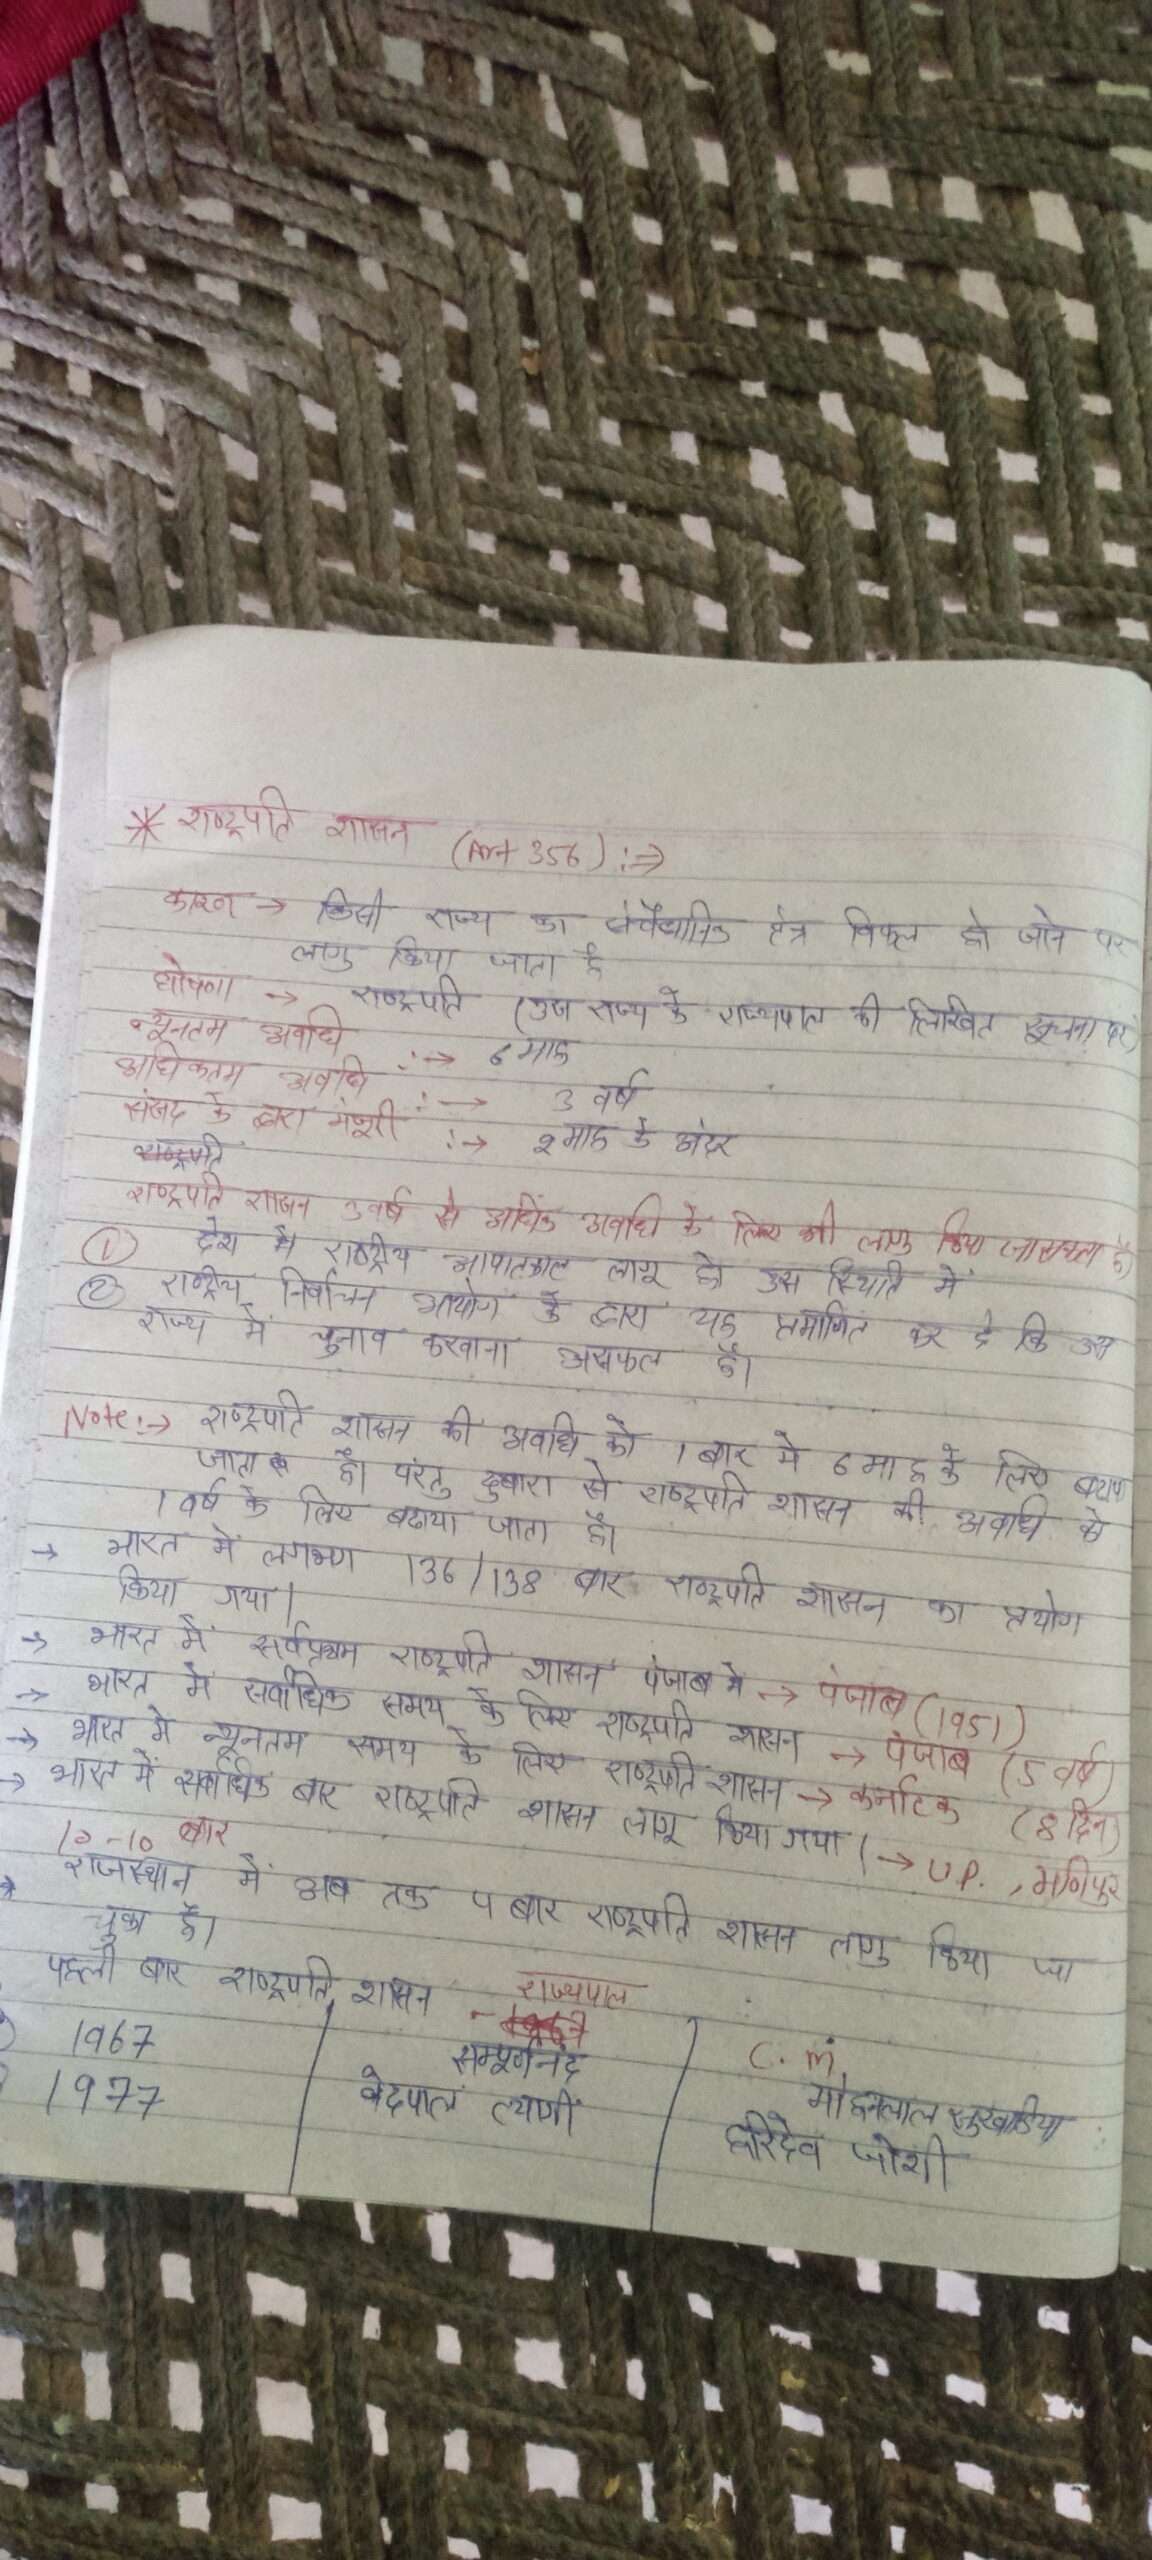 * राष्ट्रपति शासन (Art 356) :⇒
कारण → किसी राज्य का संवैधानिक तंत्र विफल हो जाने पर
लागु किया जाता है
घोषणा → राष्ट्रपति (उस राज्य के राज्यपाल की लिखित सूचना पर)
न्यूनतम अवधि :→ 6 माह
अधिकतम अवधि :→ 3 वर्ष
संसद के द्वारा मंजूरी :→ 2 माह के अंदर
राष्ट्रपति शासन 3 वर्ष से अधिक अवधि के लिए भी लागु किया जा सकता है।
① देश मे राष्ट्रीय आपातकाल लागू हो उस स्थिति में
② राष्ट्रीय निर्वाचन आयोग के द्वारा यह प्रमाणित कर दे कि उस
राज्य में चुनाव करवाना असफल है।
Note :→ राष्ट्रपति शासन की अवधि को 1 बार मे 6 माह के लिए बढाया
जाता है। परंतु दुबारा से राष्ट्रपति शासन की अवधि को
1 वर्ष के लिए बढाया जाता है।
→ भारत में लगभग 136/138 बार राष्ट्रपति शासन का प्रयोग
किया गया।
→ भारत में सर्वप्रथम राष्ट्रपति शासन पंजाब मे → पंजाब (1951)
→ भारत मे सर्वाधिक समय के लिए राष्ट्रपति शासन → पंजाब (5 वर्ष)
→ भारत मे न्यूनतम समय के लिए राष्ट्रपति शासन → कर्नाटक (8 दिन)
→ भारत में सर्वाधिक बार राष्ट्रपति शासन लागू किया गया। → U.P., मणिपुर
10-10 बार
→ राजस्थान में अब तक 4 बार राष्ट्रपति शासन लागु किया जा
चुका है।
पहली बार राष्ट्रपति शासन राज्यपाल C.M.
1967 सम्पूर्णनंद मोहनलाल सुखाडिया
1977 वेदपाल त्यागी हरिदेव जोशी